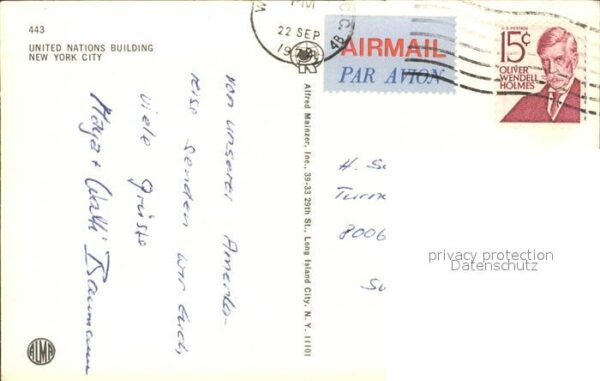 443
UNITED NATIONS BUILDING
NEW YORK CITY
PM
22 SEP
AIRMAIL
PAR AVION
U.S. POSTAGE
15¢
OLIVER
WENDELL
HOLMES
Von unserer Amerika-
reise senden wir Euch,
viele Grüsse
Maya + Walti Baumann
Alfred Mainzer, Inc., 39-33 29th St., Long Island City, N. Y. 11101
H.
8006
privacy protection
Datenschutz
ALMA